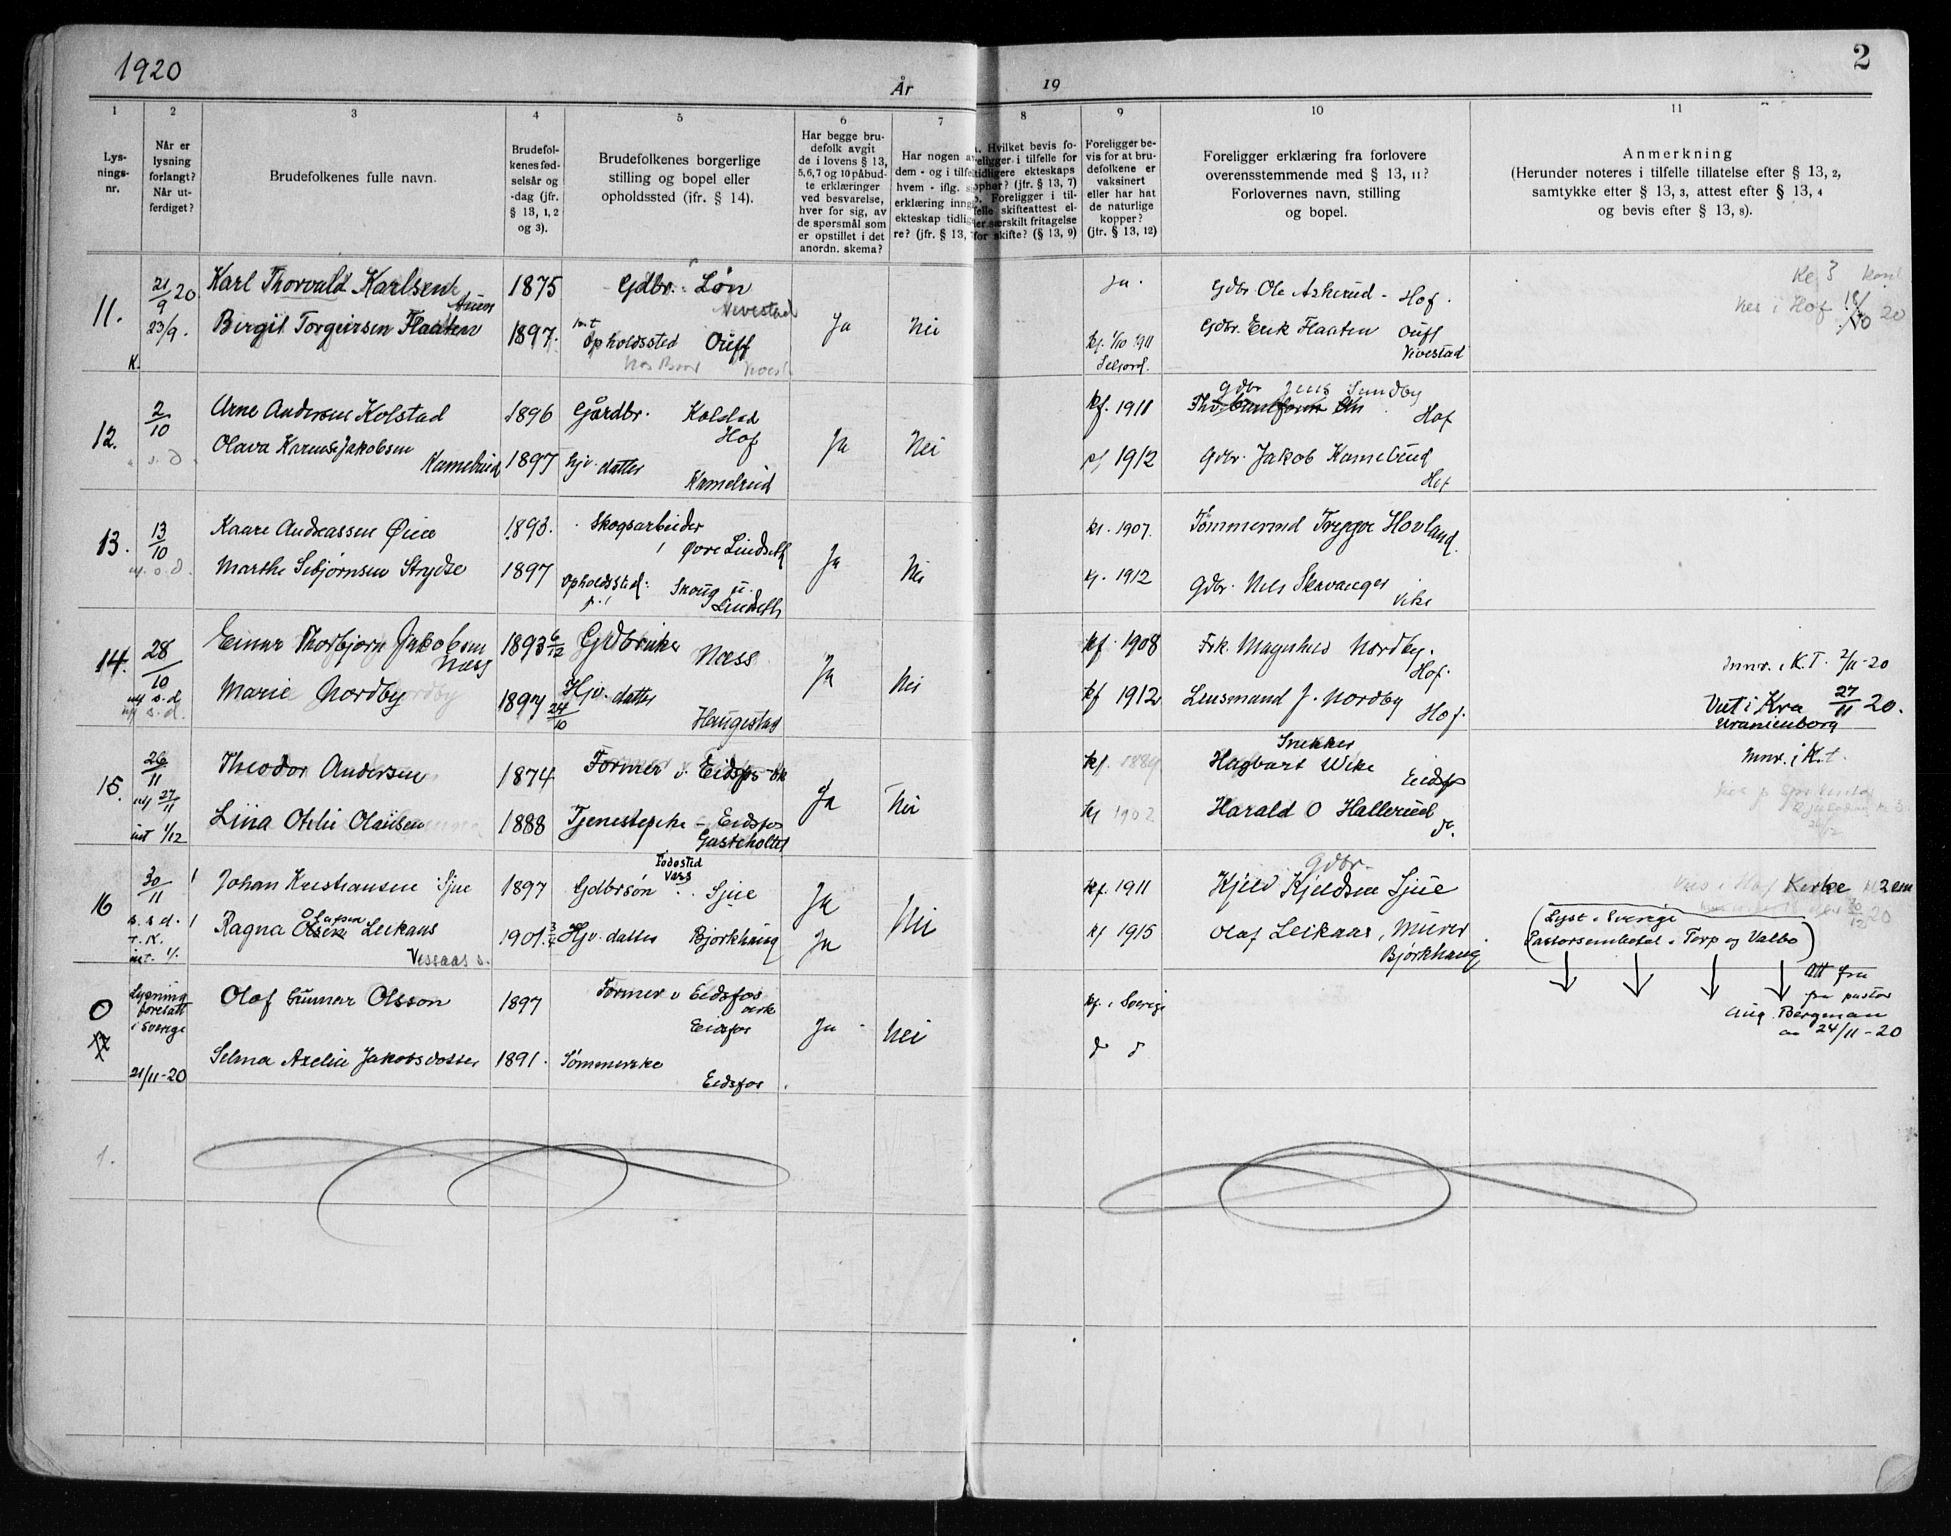 1920
År
19
2
1
2
3
4
5
6
7
8
9
10
11
Lys-
nings-
nr.
Når er
lysning
forlangt?
Når ut-
ferdiget?
Brudefolkenes fulle navn.
Brudefol-
kenes fød-
selsår og
-dag (jfr.
§ 13, 1, 2
og 3).
Brudefolkenes borgerlige
stilling og bopel eller
opholdssted (jfr. § 14).
Har begge bru-
defolk avgit
de i lovens § 13,
5, 6, 7 og 10 påbud-
te erklæringer
ved besvarelse,
hver for sig, av
de spørsmål som
er opstillet i det
anordn. skema?
Har nogen a
dem - og i tilfel
hvem - iflg. s
erklæring inng
ekteskap tidlig
re? (jfr. § 13,
Hvilket bevis fo-
religger i tilfelle for
tidligere ekteskaps
ophør? (jfr. § 13, 7)
Foreligger i til-
felle skifteattest el-
ler særskilt fritagelse
for skifte? (§ 13, 9)
Foreligger be-
vis for at bru-
defolkene er
vaksinert
eller har hat
de naturlige
kopper?
(jfr. § 13, 12)
Foreligger erklæring fra forlovere
overensstemmende med § 13, 11?
Forlovernes navn, stilling
og bopel.
Anmerkning
(Herunder noteres i tilfelle tillatelse efter § 13, 2,
samtykke etter § 13, 3, attest efter § 13, 4
og bevis efter § 13, 8).
11.
21/9 20
23/9.
K.
Karl Thorvald Karlsen
Birgit Torgeirsen Flaaten
1875
1897.
Gdbr. Løn
Vivestad
Opholdssted Ouff
Ja
Nei
ja.
kf. 1/10 1911
Seljord.
Gdbr Ole Askerud - Hof.
Gdbr. Erik Flaaten Ouff
Vivestad
Hof 18/10 20
12.
2/10
Arne Andersen Kolstad
Olava Karense Jakobsen
Kamelrud
1896
1897
Gårdbr. Kolstad
Hof
hjv. datter
Kamelrud
Ja
Nei
kf. 1911
kf 1912
Gdbr Jens Sundby
Hof
Gdbr. Jakob Kamelrud
Hof
13.
13/10
Kaare Andreassen Øiea
Marthe Sebjørnsen Strydse
1893.
1897
Skogsarbeider
Øvre Lindseth
Opholdssted: Skoug u.
Lindseth
Ja
Nei
kf. 1907.
kf. 1912
Tømmermd Trygve Hovland.
Gdbr. Nels Skavanger
Vike
14.
28/10
Einar Thorbjørn Jakobsen
Næss
Marie Nordby
1893 6/12
1897 24/10
Gdbruker
Næss
Hjv. datter
Haugestad
Ja
Nei
kf. 1908
kf 1912
Frk. Magnhild Nordby.
Hof.
Lensmand J. Nordby
Hof.
Innv. i K.T. 2/11-20
Viet i Kra 27/11 20.
Uranienborg
15.
26/11
utf 27/11
int 1/12
Theodor Andersen
Lina Otelie Olausen
1874
1888
Former v. Eidsfos vk
Tjenestepike - Eidsfos
Gasteholtet
Ja
Nei
kf. 1889
kf 1902
Snekker
Hagbart Wike
Eidsfos
Harald O Hallerud
do.
Innv. i K.t.
16
30/11
s. s. d.
int. 1/.
Johan Kristiansen Sjue
Ragna Olsen Leikaas
Olafsen
Vessaas s.
1897
1901. 3/4
Fødested
Vass
Gdbrsøn Sjue
Hjv. datter Bjørkhaug
Ja
Ja
Nei
kf. 1911
kf 1915
Gdbr.
Kjeld Kjeldsen Sjue
Olaf Leikaas, Murer
Bjørkhaug
Hof Kirke
(Lyst i Sverige
Pastorsembetet i Torp og Valbo)
O
17
Lysning
foretatt
i Sverige
21/11-20
Olof Gunnar Olsson
Selma Axelia Jakobsdotter
1897
1891.
Former v Eidsfos
verk
Eidsfos
Sømmerske
Eidsfos.
Ja
Nei
kf. i Sverige
do do
Att fra
fra pastor
Aug. Bergman
av 24/11-20